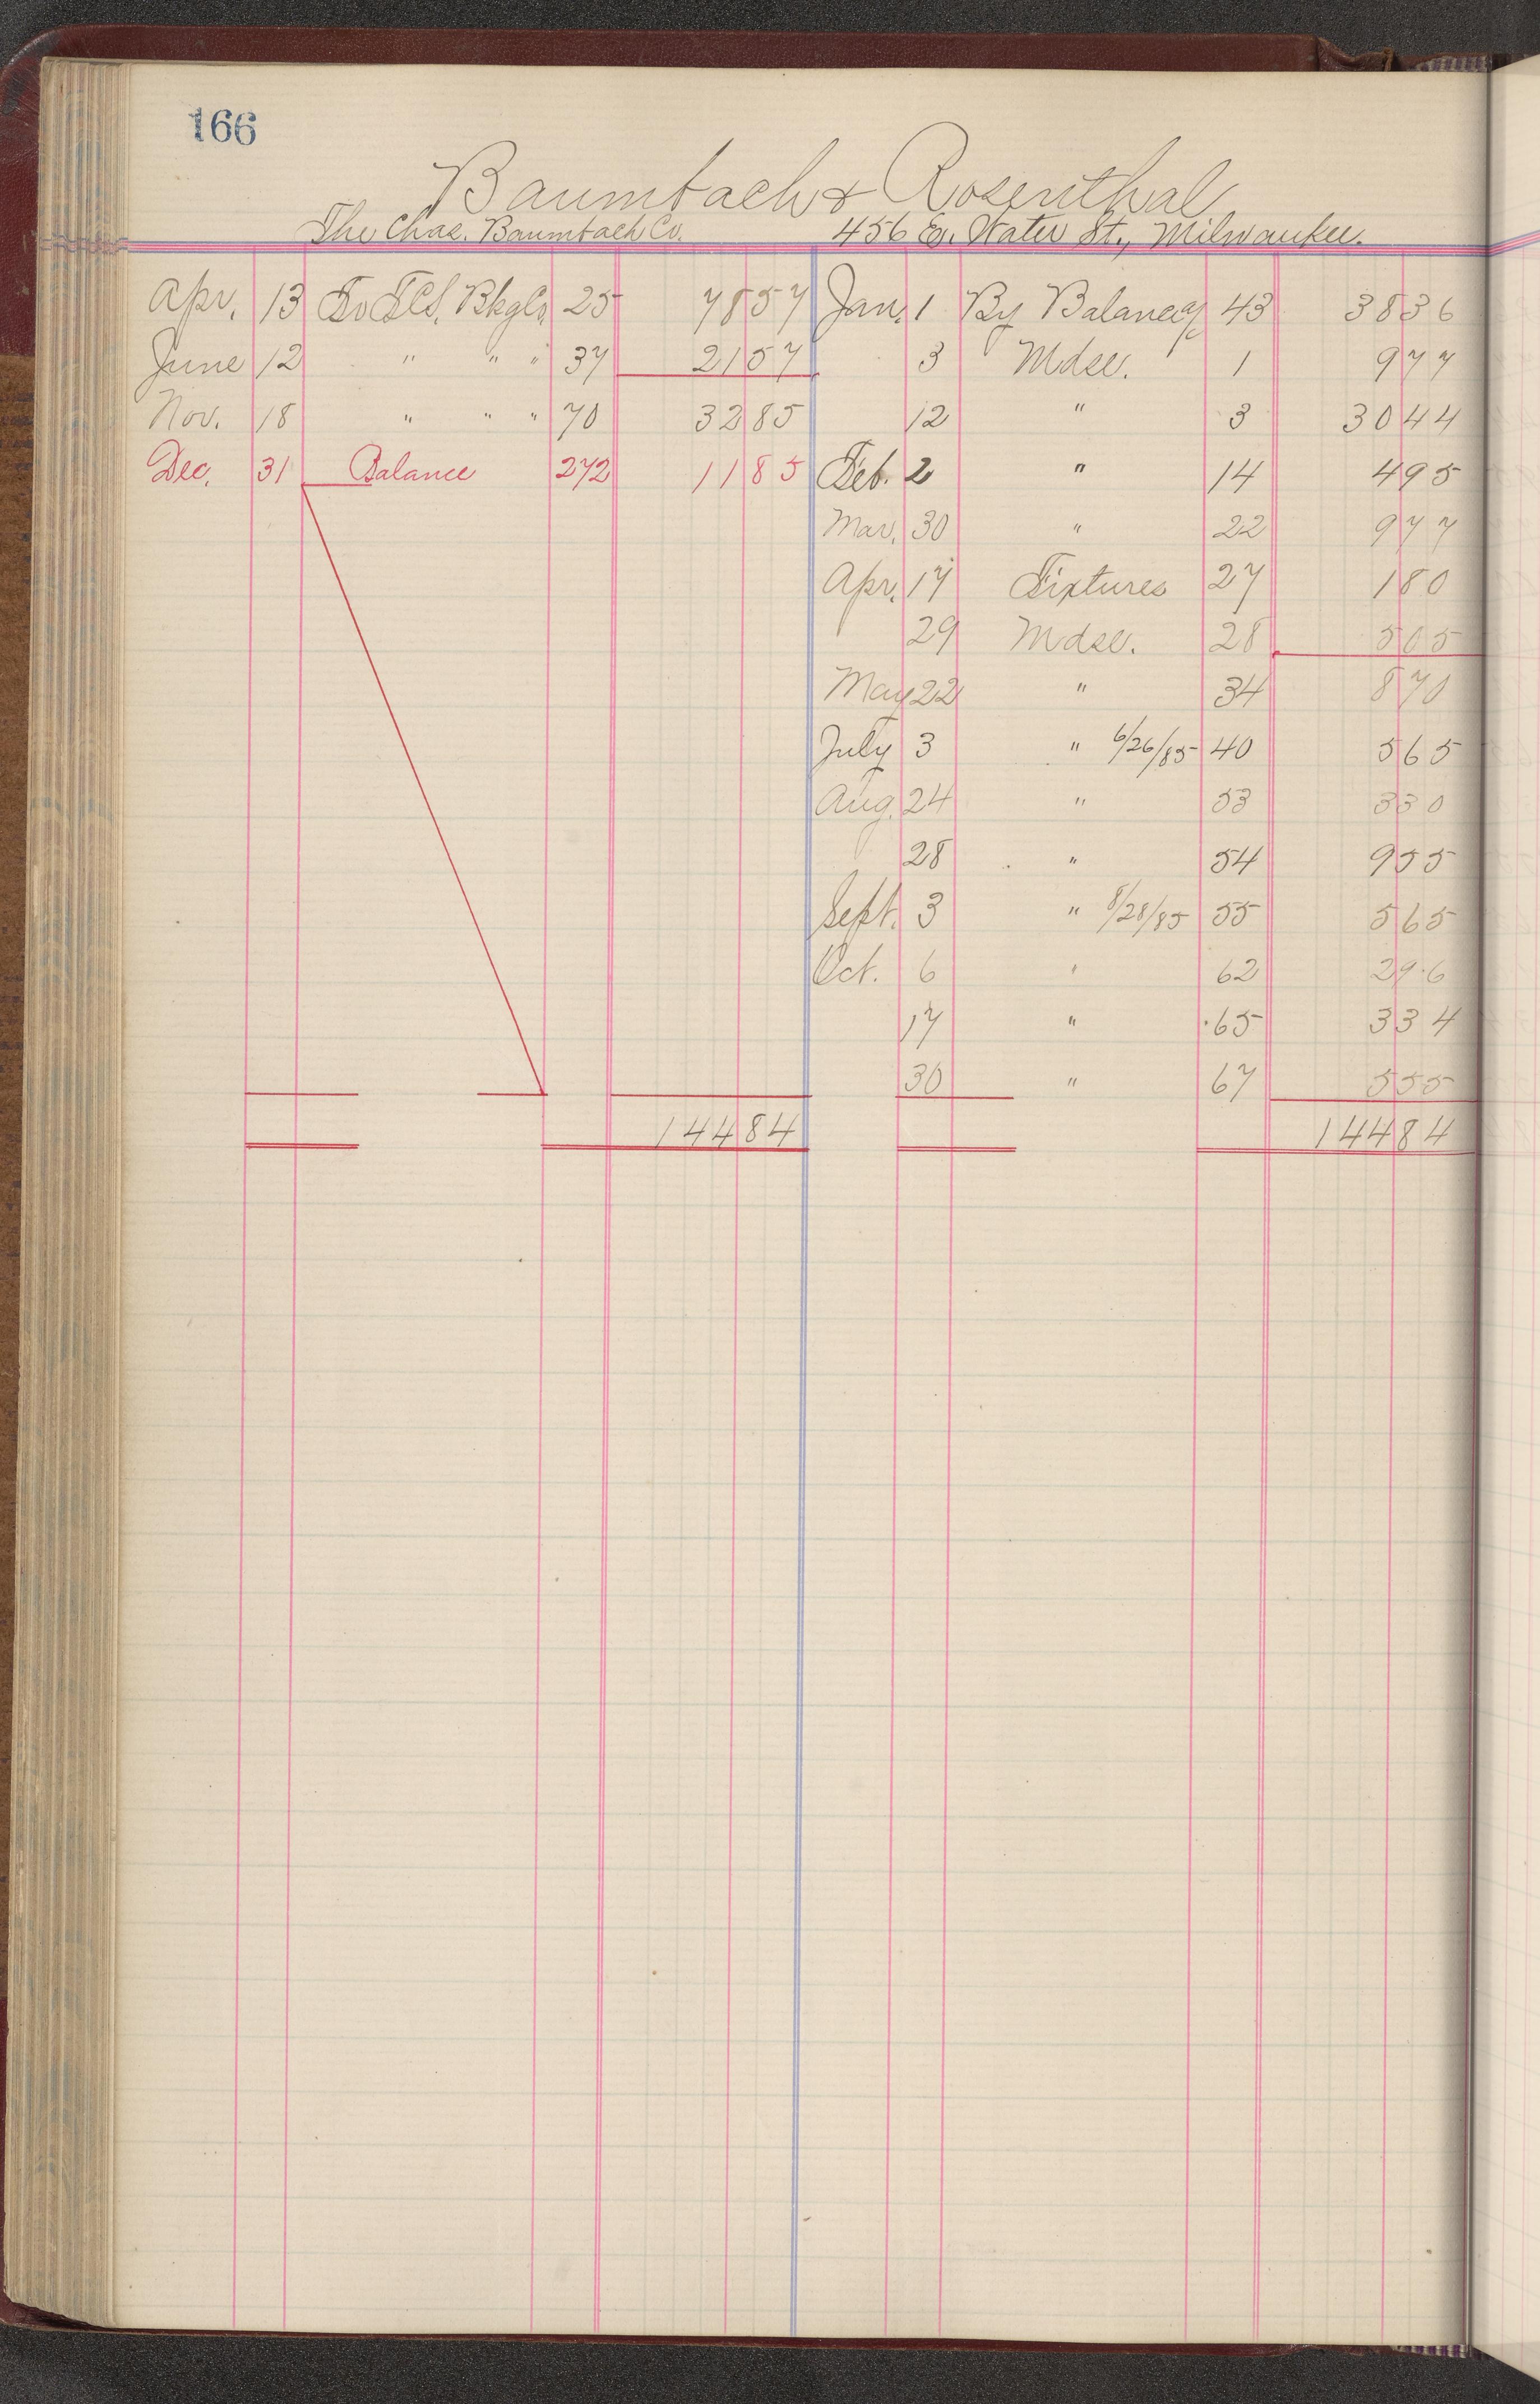 166
Baumbach & Rosenthal
The Chas. Baumbach Co. 456 E. Water St., Milwaukee.
Apr. 13 To F.C.S. Bkg Co. 25 78 57 Jan. 1 By Balance 43 38 36
June 12 " " " 37 21 57 3 Mdse. 1 9 77
Nov. 18 " " " 70 32 85 12 " 3 30 44
Dec. 31 Balance 272 11 85 Feb. 2 " 14 4 95
Mar. 30 " 22 9 77
Apr. 17 Fixtures 27 1 80
29 Mdse. 28 5 05
May 22 " 34 8 70
July 3 " 6/26/85 40 5 65
Aug. 24 " 53 3 30
28 " 54 9 55
Sept. 3 " 8/28/85 55 5 65
Oct. 6 " 62 2 96
17 " 65 3 34
30 " 67 5 55
144 84 144 84